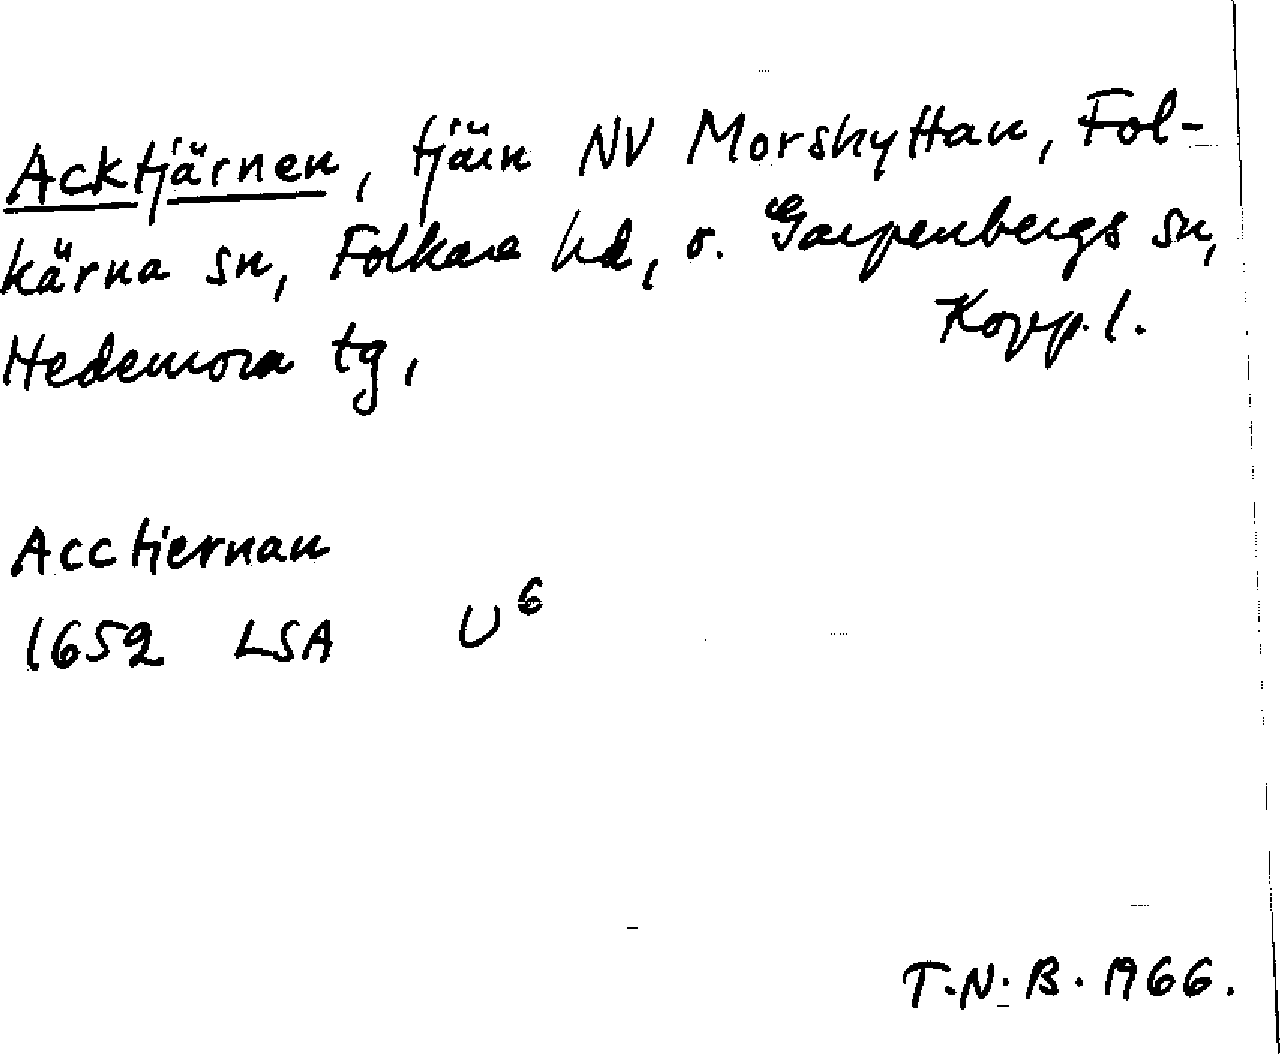 Acktjärnen, tjärn NV Morshyttan, Fol-
kärna sn, Folkare hd, o. Garpenbergs sn,
Hedemora tg, Kopp. l.
Acctiernan
1652 LSA U⁶
T.N.B. 1966.